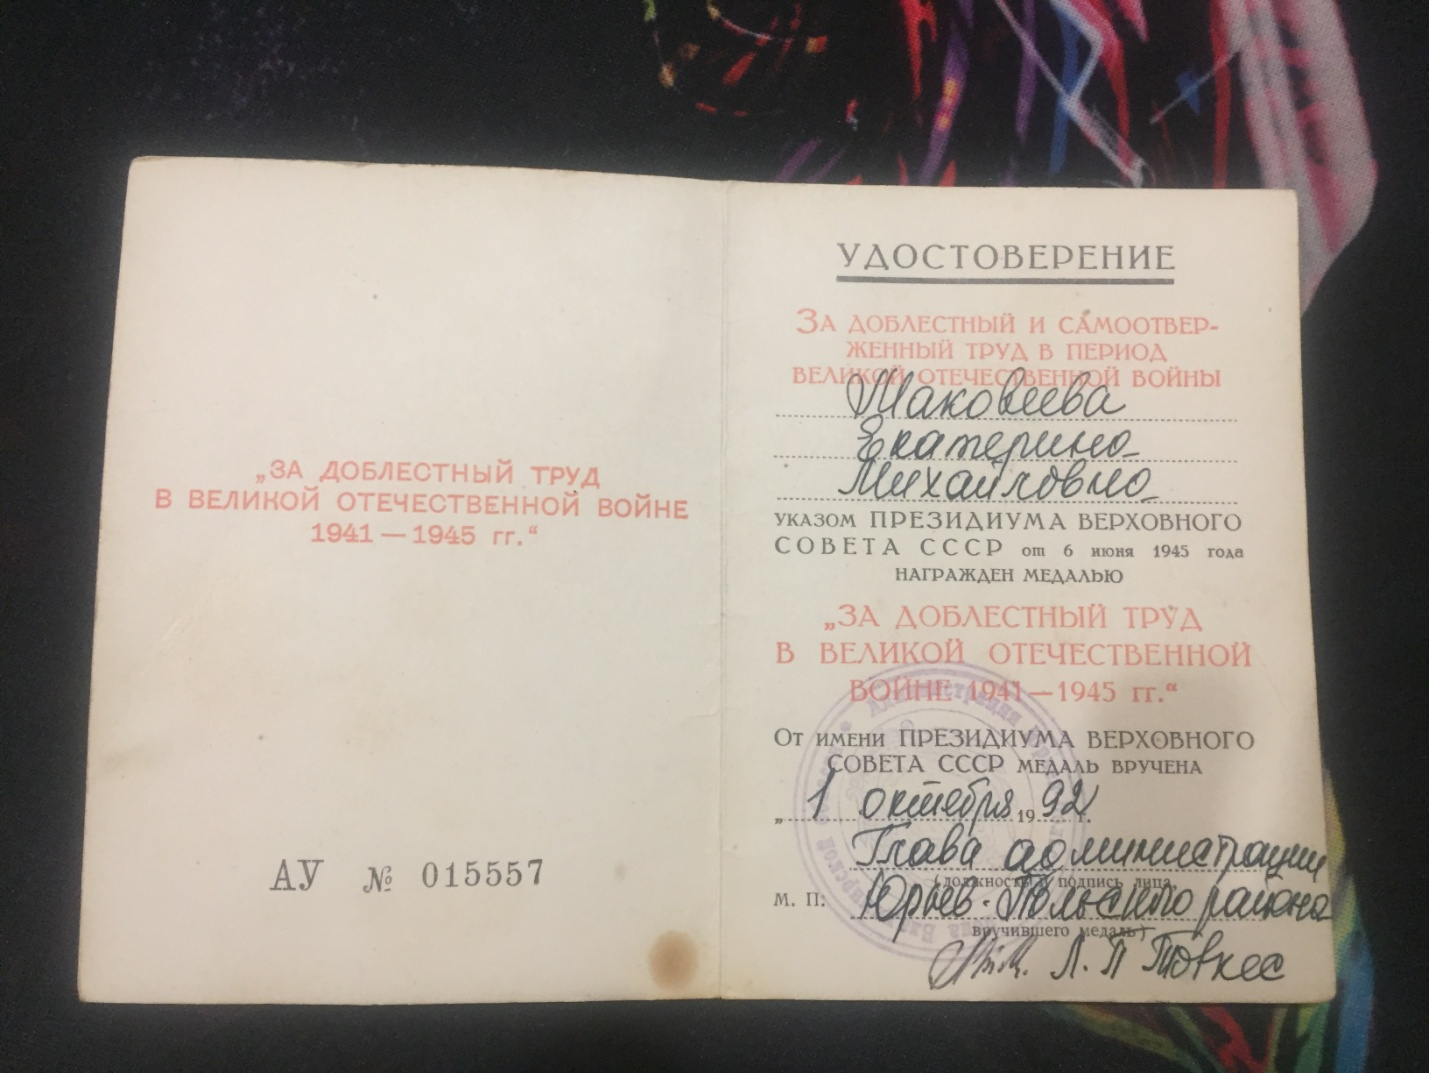 „ЗА ДОБЛЕСТНЫЙ ТРУД
В ВЕЛИКОЙ ОТЕЧЕСТВЕННОЙ ВОЙНЕ
1941 — 1945 гг.“
АУ № 015557
УДОСТОВЕРЕНИЕ
ЗА ДОБЛЕСТНЫЙ И САМООТВЕР-
ЖЕННЫЙ ТРУД В ПЕРИОД
ВЕЛИКОЙ ОТЕЧЕСТВЕННОЙ ВОЙНЫ
Маковеева
Екатерина
Михайловна
УКАЗОМ ПРЕЗИДИУМА ВЕРХОВНОГО
СОВЕТА СССР от 6 июня 1945 года
НАГРАЖДЕН МЕДАЛЬЮ
„ЗА ДОБЛЕСТНЫЙ ТРУД
В ВЕЛИКОЙ ОТЕЧЕСТВЕННОЙ
ВОЙНЕ 1941 — 1945 гг.“
ОТ ИМЕНИ ПРЕЗИДИУМА ВЕРХОВНОГО
СОВЕТА СССР МЕДАЛЬ ВРУЧЕНА
„1 октября 1992 г.
Глава администрации
(должность и подпись лица,
М. П: Юрьев-Польского района
вручившего медаль)
Л. П
Администрация